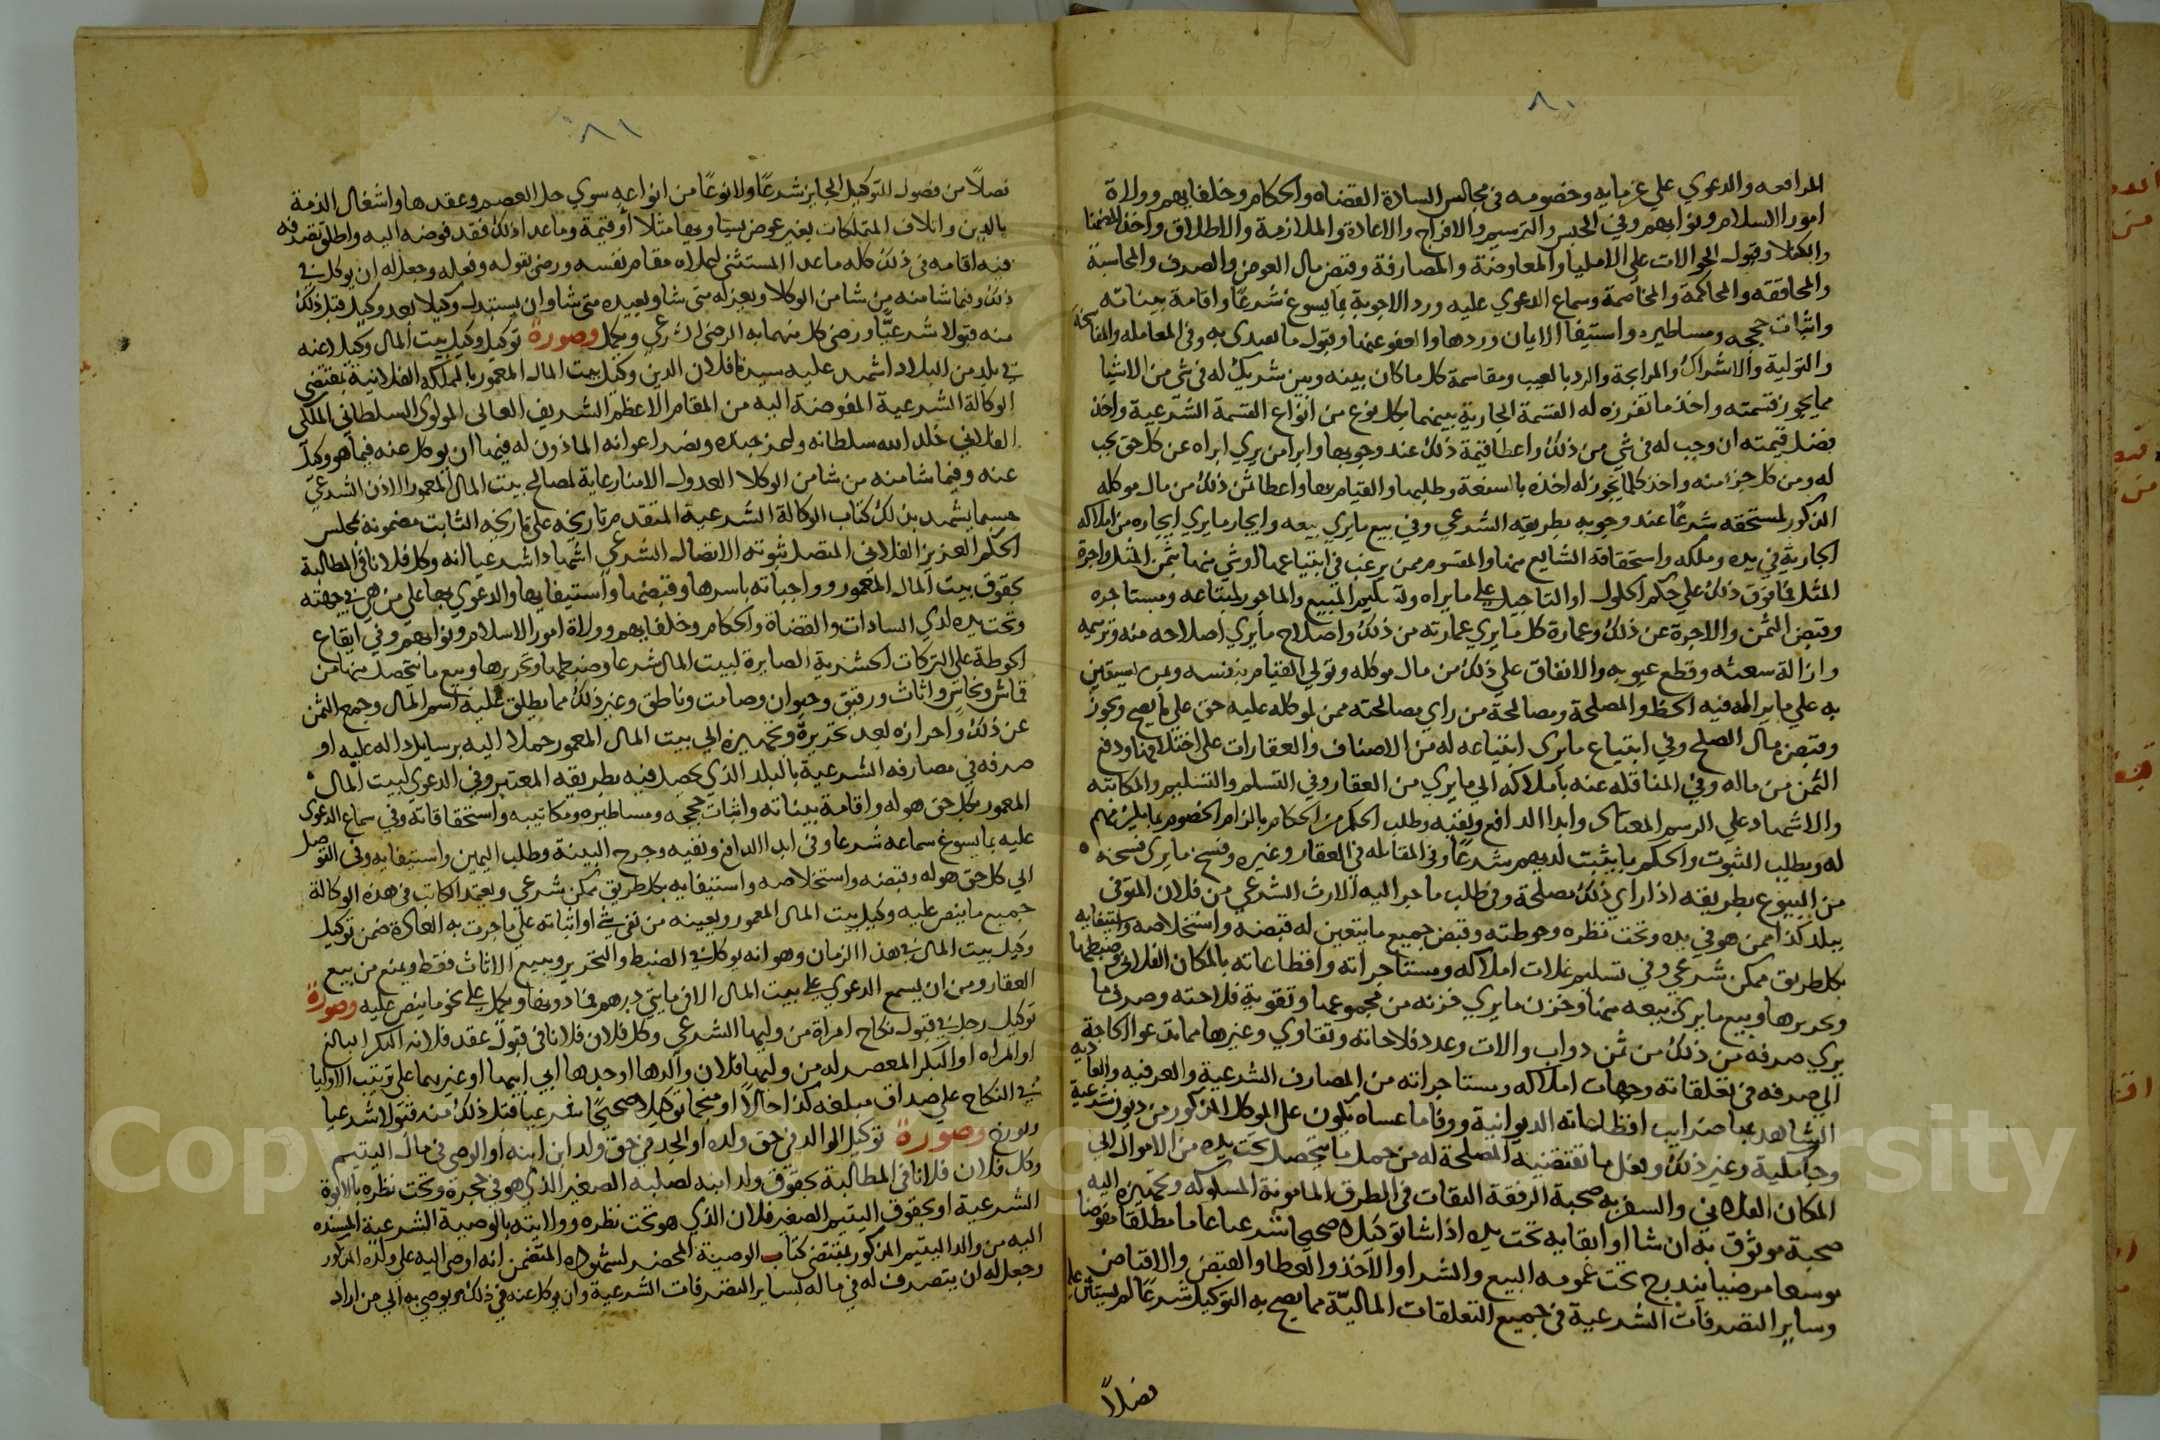 ٨٠
المرافعه والدعوي علي غرمايه وخصومه في مجالس السادة القضاه والحكام وخلفايهم وولاة
امور الاسلام ونوابهم وفي الحبس والترسيم والافراج والاعادة والملازمة والاطلاق واخذ الضمنا
والكفلا وقبول الحوالات علي الامليا والمعاوضة والمصارفة وقبض مال العوض والصرف والمحاسبة
والمحاققه والمحاكمة والمخاصمة وسماع الدعوي عليه ورد الاجوبة بما يسوغ شرعا واقامة بيناته
واثبات حججه ومساطيره واستيفا الايمان وردها والعفو عنها وقبول ما يهدى به وفي المعامله والفا سخة
والتولية والاشراك والمرابحة والرد بالعيب ومقاسمة كل ما كان بينه وبين شريك له في شي من الاشيا
مما يجوز قسمته واخذ ما تفرزه له القسمة الجارية بينهما بكل نوع من انواع القسمة الشرعية واخذ
فضل قيمته ان وجب له في شي من ذلك واعطا قيمة ذلك عند وجوبها وابرا من يري ابراه عن كل حق يجب
له ومن كل جزء منه واخذ كلما يجوز له اخذه بالشفعة وطلبها والقيام بها واعطا ثمن ذلك من مال موكله
المذكور لمستحقه شرعا عند وجوبه بطريقه الشرعي وفي بيع ما يري بيعه وايجار ما يري ايجاره من املاكه
الجارية في يده وملكه واستحقاقه الشايع منها والمقسوم ممن يرغب في ابتياعها او شي منها بثمن المثل واجرة
المثل فما فوق ذلك علي حكم الحلول او التاجيل علي ما يراه وتسليم المبيع والماجور لمبتاعه ومستاجره
وقبض الثمن والاجرة عن ذلك وعمارة كل ما يري عمارته من ذلك واصلاح ما يري اصلاحه منه وترميمه
وازالة سعثه وقطع عيوبه والانفاق علي ذلك من مال موكله وتولي القيام به بنفسه وبمن يستعين
به علي ما يراله فيه الحظ والمصلحة ومصالحة من راي مصالحته ممن لموكله عليه حق علي ما يصح ويجوز
وقبض مال الصلح وفي ابتياع ما يرى ابتياعه له من الاصناف والعقارات علي اختلافها ودفع
الثمن من ماله وفي المناقله عنه باملاكه الي ما يري من العقار وفي التسلم والتسليم والمكاتبة
والاشهاد علي الرسم المعتاد وابدا الدافع ونفيه وطلب الحكم من الحكام بالزام الخصوم بما يلزمهم
له ويطلب الثبوت والحكم بما يثبت لديهم شرعا وفي المقايله في العقار وغيره وفسخ ما يرى فسخه
من البيوع بطريقه اذا راي ذلك مصلحة وفي طلب ما جر اليه الارث الشرعي من فلان المتوفى
ببلد كذا ممن هو في يده وتحت نظره وحوطته وقبض جميع ما يتعين له قبضه واستخلاصه واستيفايه
بكل طريق ممكن شرعي وفي تسليم غلات املاكه ومستاجراته واقطاعاته بالمكان الفلاني وضبطها
وتحريرها وبيع ما يرى بيعه منها وخزن ما يري خزنه من مجموعها وتقوية فلاحته وصرف ما
يري صرفه من ذلك من ثمن دواب والات وعدد فلاحاته وتقاوي وغيرها مما تدعوا الحاجة
الي صرفه في تعلقاته وجهات املاكه ومستاجراته من المصارف الشرعية والعرفيه والعا ديه
الشاهد بها ضرايب اقطاعاته الديوانية ووفا ما عساه يكون علي الموكل المذكور من ديون شرعية
وجامكية وغير ذلك وفعل ما تقتضيه المصلحة له من حمل ما يتحصل تحت يده من الاموال الي
المكان الفلاني والسفر به صحبة الرفقة الثقات في الطرق المامونة المسلوكه وتجهيزه اليه
صحبة موثوق به ان شا او ابقايه تحت يده اذا شا توكيلا صحيحا شرعيا عاما مطلقا مفوضا
موسعا مرضيا يندرج تحت عمومه البيع والشرا والاخذ والعطا والقبض والاقباض
وساير التصرفات الشرعية في جميع التعلقات المالية مما يصح به التوكيل شرعا لم يستثن عليه
فصلا
٨١
فصلا من فصول التوكيل الجايز شرعا ولا نوعا من انواعه سوي حل العصم وعقدها واشغال الذمة
بالدين واتلاف المتملكات بغير عوض يساويها مثلا او قيمة وما عدا ذلك فقد فوضه اليه واطلق تصرفه
فيه اقامه في ذلك كله ما عدا المستثني بهملاه مقام نفسه ورضي بقوله وفعله وجعل له ان يوكل في
ذلك وفيما شا منه من شا من الوكلا ويعزله متى شا ويعيده متى شا وان يستبدل وكيلا بعد وكيل قبل ذلك
منه قبولا شرعيا ورضي كل منهما به الرضى الشرعي ويكمل وصورة توكيل وكيل بيت المال وكيلا عنه
في بلد من البلاد اشهد عليه سيدنا فلان الدين وكيل بيت المال المعمور بالمملكه الفلانية بمقتضى
الوكالة الشرعية المفوضة اليه من المقام الاعظم الشريف العالى المولوى السلطاني الملكى
الفلاني خلد الله سلطانه واعز جنده ونصر اعوانه الماذون له فيها ان يوكل عنه فيما هو وكيل
عنه وفيما شا منه من شا من الوكلا العدول الامنا رعاية لمصالح بيت المال المعمور الاذن الشرعي
حسبما يشهد بذلك كتاب الوكالة الشرعية المتقدم تاريخه علي تاريخه الثابت مضمونه بمجلس
الحكم العزيز الفلاني المتصل ثبوته الاتصال الشرعي اشهادا شرعيا انه وكل فلانا في المطالبة
بحقوق بيت المال المعمور وواجباته باسرها وقبضها واستيفايها والدعوي بها علي من هي في جهته
وتحت يده لدي السادات والقضاة والحكام وخلفايهم وولاة امور الاسلام ونوابهم وفي ايقاع
الحوطة علي التركات الحشرية الصايرة لبيت المال شرعا وضبطها وتحريرها وبيع ما يتحصل منها من
قماش ونحاس واثاث ورقيق وحيوان وصامت وناطق وغير ذلك مما يطلق عليه اسم المال وجمع الثمن
عن ذلك واحرازه بعد تحريره وتجهيزه الي بيت المال المعمور حملا اليه برسايل داله عليه او
صرفه في مصارفه الشرعية بالبلد الذي يحصل فيه بطريقه المعتبر وفي الدعوي لبيت المال
المعمور بكل حق هو له واقامة بيناته واثبات حججه ومساطيره ومكاتيبه واستحقاقاته وفي سماع الدعوى
عليه بما يسوغ سماعه شرعا وفي ابدا الدافع ونفيه وجرح البينة وطلب اليمين واستيفايه وفي التوصل
الي كل حق هو له وقبضه واستخلاصه واستيفايه بكل طريق ممكن شرعي ويعتمد الكاتب في هذه الوكالة
جميع ما ينص عليه وكيل بيت المال المعمور ويعينه من نفي شي او اثباته علي ما جرت به العادة ضمن توكيل
وكيل بيت المال في هذا الزمان وهو انه يوكل في الضبط والتحرير وبيع الاثاث فقط ويمنع من بيع
العقار ومن ان يسمع الدعوي علي بيت المال الا في مايتي درهم فما دونها ويكمل علي نحو ما ينص عليه وصورة
توكيل رجل في قبول نكاح امراة من وليها الشرعي وكل فلان فلانا في قبول عقد فلانه البكر البالغ
او المراه او البكر المعصر له من وليها فلان والدها او جدها ابي ابيها او غيرهما علي ترتيب الاوليا
في النكاح علي صداق مبلغه كذا حالا او منجما توكيلا صحيحا شرعيا قبل ذلك منه قبولا شرعيا
ويورخ وصورة توكيل الوالد في حق ولده او الجد في حق ولد ابن ابنه او الوصي في مال اليتيم
وكل فلان فلانا في المطالبة بحقوق ولد ابنه لصلبه الصغير الذي هو في حجره وتحت نظره بالابوة
الشرعية او بحقوق اليتيم الصغير فلان الذي هو تحت نظره وولايته بالوصية الشرعية المسنده
اليه من والد اليتيم المذكور بمقتضى كتاب الوصية المحضر لشهوده المتضمن انه اوصي اليه علي ولده المذكور
وجعل له ان يتصرف له في ماله بساير التصرفات الشرعية وان يوكل عنه في ذلك ويوصي به الي من اراد
Copyright © King Saud University